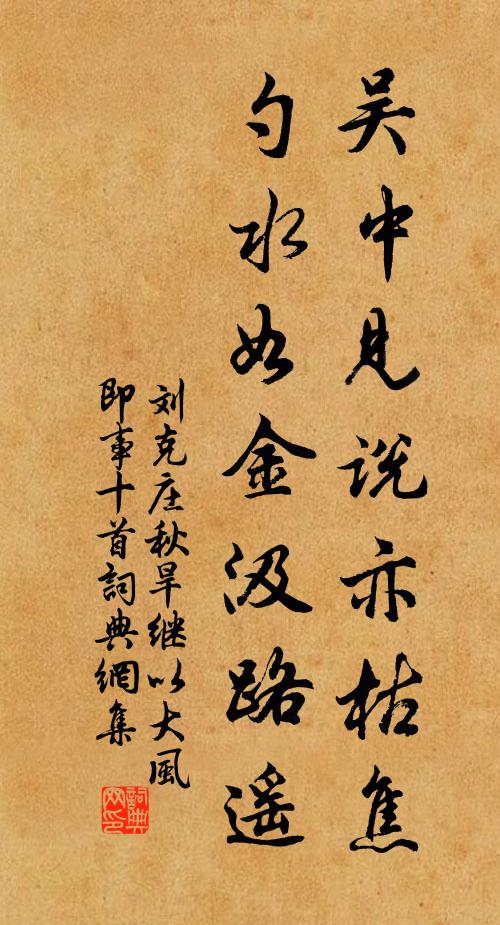 吴中见说亦枯焦
勺水如金汲路遥
刘克庄秋旱继以大風
即事十首詞典網集
詞典网印